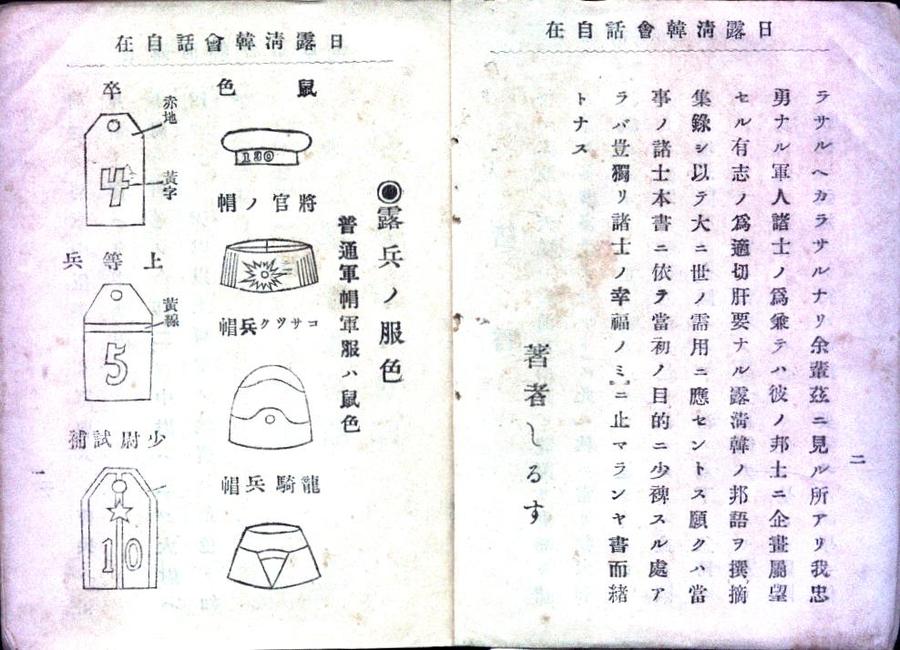 日露清韓會話自在
二
ラサルヘカラサルナリ余輩茲ニ見ル所アリ我忠
勇ナル軍人諸士ノ爲乗テハ彼ノ邦土ニ企畫屬望
セル有志ノ爲適切肝要ナル露清韓ノ邦語ヲ撰摘
集錄シ以テ大ニ世ノ需用ニ應セントス願クハ當
事ノ諸士本書ニ依テ當初ノ目的ニ少裨スル處ア
ラバ豈獨リ諸士ノ幸福ノミニ止マランヤ書而緒
トナス
著者しるす
日露清韓會話自在
◉露兵ノ服色
普通軍帽軍服ハ鼠色
鼠色
130
將官ノ帽
コサツク兵帽
龍騎兵帽
卒
赤地
黃字
4
上等兵
黃線
5
少尉試補
10
一